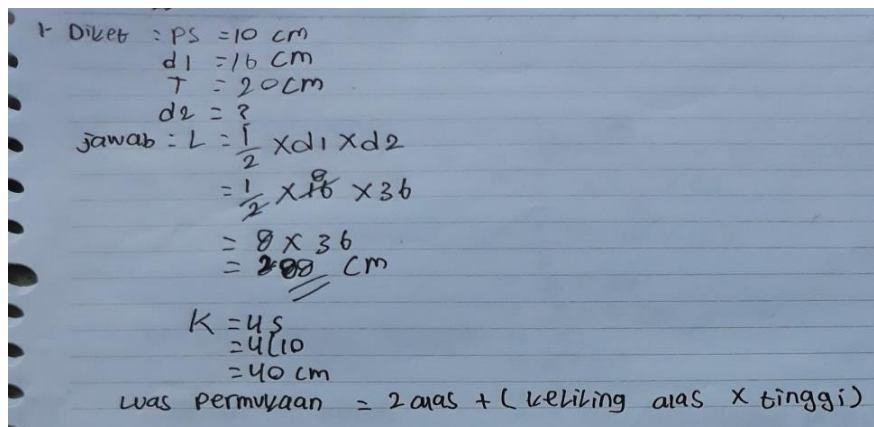 1- Diket : PS = 10 cm
d1 = 16 cm
T = 20 cm
d2 = ?
jawab : L = 1/2 x d1 x d2
= 1/2 x 16 8 x 36
= 8 x 36
= 288 cm
K = 4 s
= 4(10
= 40 cm
Luas permukaan = 2 alas + ( keliling alas x tinggi )